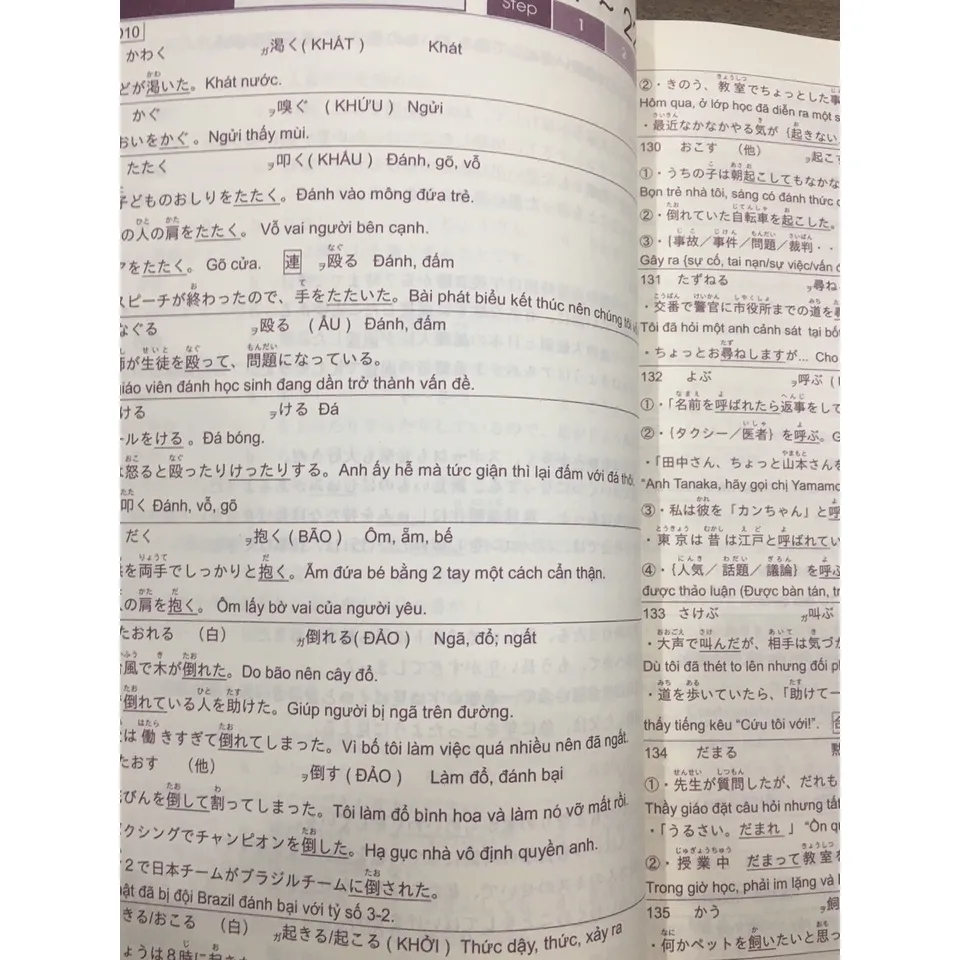 Step 1 2
010
かわく ガ渇く( KHÁT ) Khát
どが渇いた。Khát nước.
かぐ ヲ嗅ぐ ( KHỨU ) Ngửi
おいをかぐ 。Ngửi thấy mùi.
たたく ヲ叩く( KHẤU ) Đánh, gõ, vỗ
子どものおしりをたたく。Đánh vào mông đứa trẻ.
の人の肩をたたく。 Vỗ vai người bên cạnh.
をたたく。 Gõ cửa. 連 ヲ殴る Đánh, đấm
スピーチが終わったので、手をたたいた。Bài phát biểu kết thúc nên chúng tôi
なぐる ヲ殴る ( ẨU ) Đánh, đấm
が生徒を殴って、問題になっている。
giáo viên đánh học sinh đang dần trở thành vấn đề.
ける ヲける Đá
ールをける 。Đá bóng.
は怒ると殴ったりけったりする。Anh ấy hễ mà tức giận thì lại đấm với đá thôi.
叩く Đánh, vỗ, gõ
だく ヲ抱く ( BÃO ) Ôm, ẵm, bế
を両手でしっかりと抱く。Ẵm đứa bé bằng 2 tay một cách cẩn thận.
の肩を抱く。 Ôm lấy bờ vai của người yêu.
たおれる (白) ガ倒れる( ĐẢO ) Ngã, đổ; ngất
風で木が倒れた。Do bão nên cây đổ.
倒れている人を助けた。Giúp người bị ngã trên đường.
は働きすぎて倒れてしまった。Vì bố tôi làm việc quá nhiều nên đã ngất.
たおす (他) ヲ倒す( ĐẢO ) Làm đổ, đánh bại
びんを倒して割ってしまった。Tôi làm đổ bình hoa và làm nó vỡ mất rồi.
クシングでチャンピオンを倒した。Hạ gục nhà vô địch quyền anh.
2で日本チームがブラジルチームに倒された。
hật đã bị đội Brazil đánh bại với tỷ số 3-2.
きる/おこる (白) ガ起きる/起こる ( KHỞI ) Thức dậy, thức, xảy ra
ょうは8時に起き
②・きのう、教室でちょっとした事
Hôm qua, ở lớp học đã diễn ra một s
・最近なかなかやる気が {起きない
130 おこす (他) ヲ起こす
①・うちの子は朝起こしてもなかな
Bọn trẻ nhà tôi, sáng có đánh thức c
②・倒れていた自転車を起こした。
③・{事故/事件/問題/裁判・・
Gây ra {sự cố, tai nạn/sự việc/vấn đ
131 たずねる ヲ尋ね
・交番で警官に市役所までの道を尋
Tôi đã hỏi một anh cảnh sát tại bố
・ちょっとお尋ねしますが... Cho
132 よぶ ヲ呼ぶ (
①・「名前を呼ばれたら返事をして
②・{タクシー/医者} を呼ぶ。G
・「田中さん、ちょっと山本さんを
“Anh Tanaka, hãy gọi chị Yamamo
③・私は彼を「カンちゃん」と呼
・東京は昔は江戸と呼ばれてい
④・{人気/ 話題/ 議論} を呼ぶ
được thảo luận (Được bàn tán, tr
133 さけぶ ガ叫ぶ
・大声で叫んだが、相手は気づか
Dù tôi đã thét to lên nhưng đối ph
・道を歩いていたら、「助けてー
thấy tiếng kêu “Cứu tôi với!”.
134 だまる 黙
①・先生が質問したが、だれも
Thầy giáo đặt câu hỏi nhưng tất
・「うるさい。だまれ 」 “Ồn qu
②・授業中 だまって教室を
Trong giờ học, phải im lặng và
135 かう ヲ飼
・何かペットを飼いたいと思っ